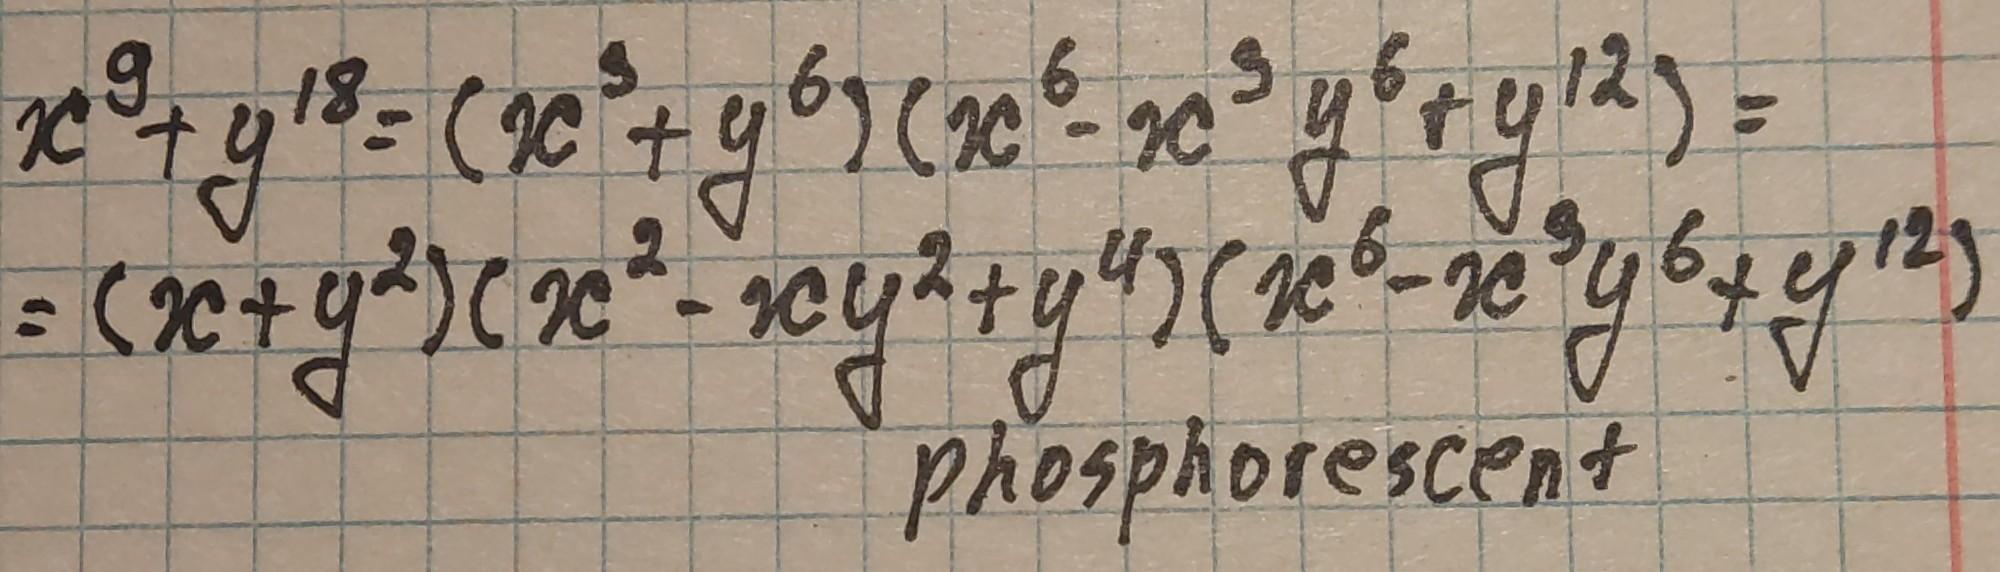 x⁹+y¹⁸=(x³+y⁶)(x⁶-x³y⁶+y¹²)=
=(x+y²)(x²-xy²+y⁴)(x⁶-x³y⁶+y¹²)
phosphorescent